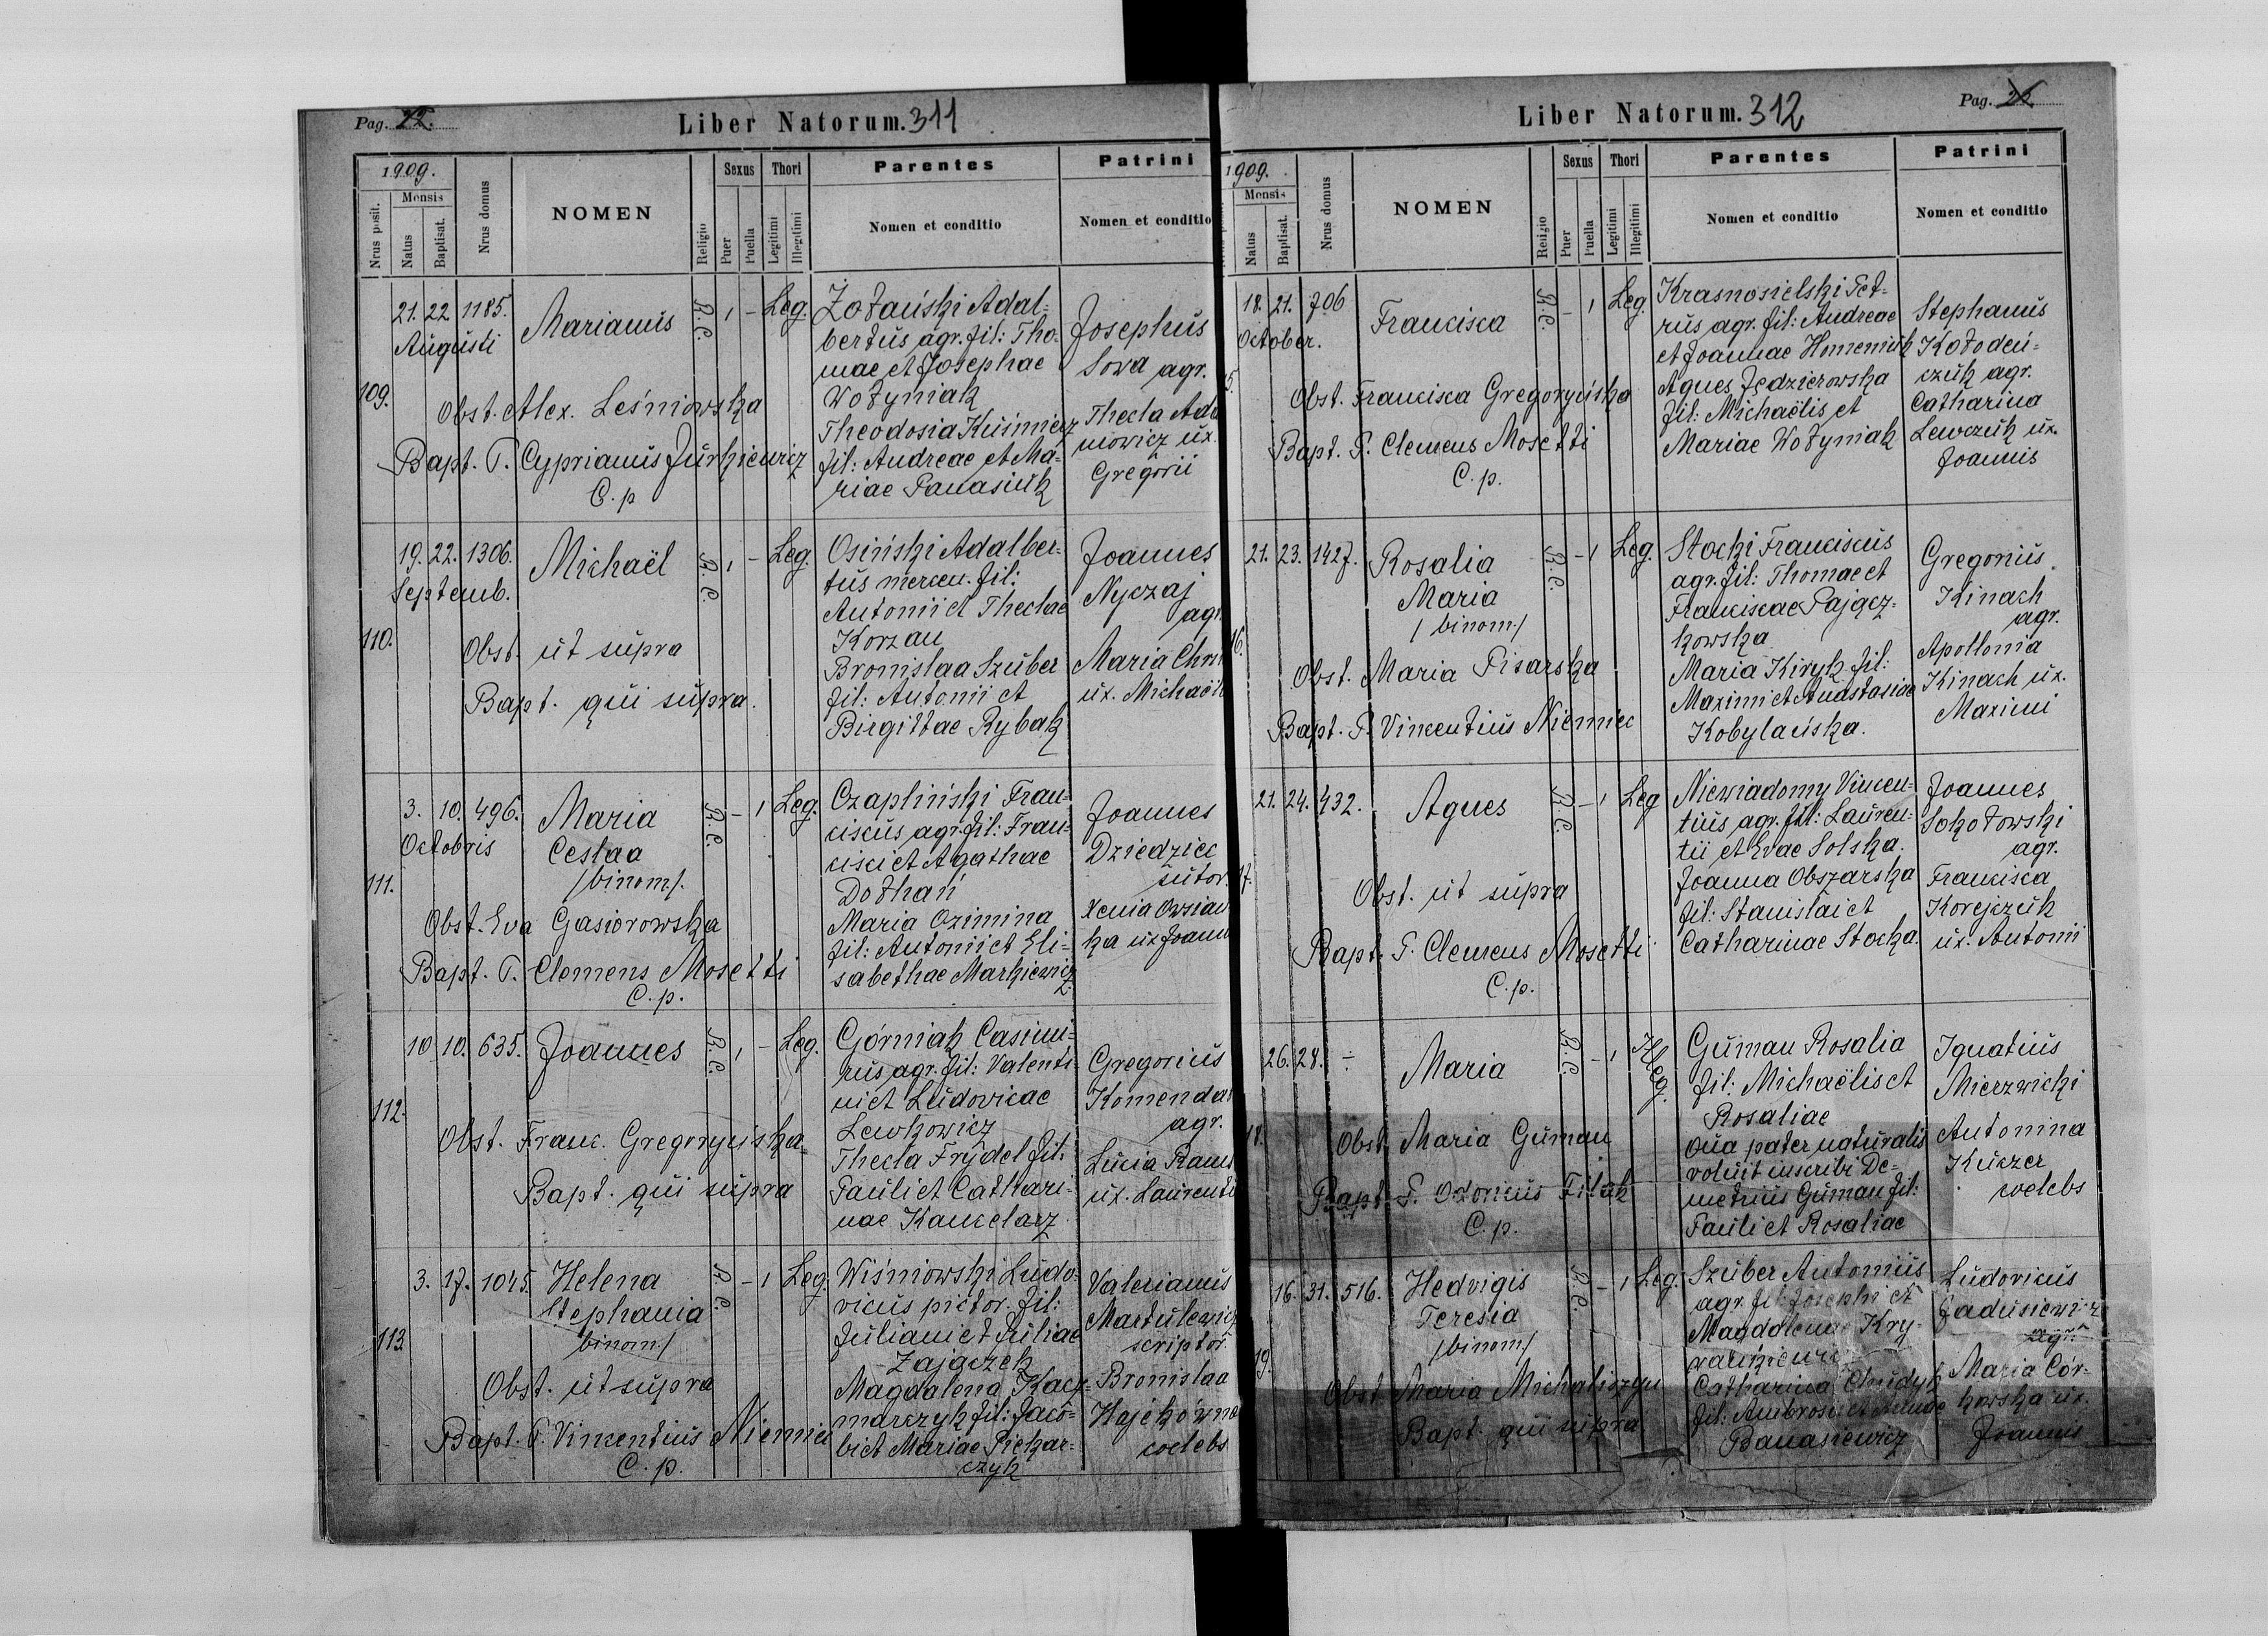 Pag. 22.
Liber Natorum. 311
1909.
Mensis
Nrus posit.
Natus
Baptisat.
Nrus domus
NOMEN
Religio
Sexus
Puer
Puella
Thori
Legitimi
Illegitimi
Parentes
Nomen et conditio
Patrini
Nomen et conditio
109.
21. 22 1185.
Augusti
Marianus
R.C. 1 - Leg.
Obst. Alex. Leśniowska
Bapt. P. Cyprianus Jurkiewicz
C. p
Żołański Adal-
bertus agr. fil: Tho-
mae et Josephae
Wołyniak
Theodosia Kuśnierz
fil: Andreae et Ma-
riae Panasiuk
Josephus
Sowa agr.
Thecla Ada
mowicz ux.
Gregorii
110.
19. 22. 1306.
Septemb.
Michaël
R.C. 1 - Leg.
Obst. ut supra
Bapt. qui supra.
Osiński Adalber-
tus mercen. fil:
Antonii et Theclae
Korzan
Bronislaa Szuber
fil: Antonii et
Birgittae Rybak
Joannes
Nyczaj
agr.
Maria
ux. Michaëli
111.
3. 10. 496.
Octobris
Maria
Ceslaa
/binom/.
R.C. - 1 Leg.
Obst. Eva Gasiorowska
Bapt. P. Clemens Mosetti
C. p.
Czapliński Fran-
ciscus agr. fil: Fran-
cisci et Agathae
Dołhań
Maria Ozimina
fil: Antonii et Eli-
sabethae Markiewicz
Joannes
Dziedzic
sutor.
Xenia Owsian
ka ux Joann
112.
10 10. 635.
Joannes
R.C. 1 - Leg.
Obst. Franc. Gregoryńska
Bapt. qui supra
Górniak Casimi-
rus agr. fil: Valenti-
ni et Ludovicae
Lewkowicz
Thecla Frydel fil:
Pauli et Cathari-
nae Kanclarz
Gregorius
Komenda
agr.
Lucia
ux. Laurenti
113.
3. 17. 1045.
Helena
Stephania
binom/
R.C. - 1 Leg.
Obst. ut supra
Bapt. P. Vincentius Niemiec
C. p.
Wiśniowski Ludo-
vicus pictor. fil:
Juliani et Juliae
Zajączek
Magdalena Kacz-
marczyk fil: Jaco-
bi et Mariae Piekar-
czyk
Valerianus
Martulewicz
scriptor
Bronislaa
Hajkówna
coelebs
Liber Natorum. 312
Pag.
1909.
Mensis
Natus
Baptisat.
Nrus domus
NOMEN
Religio
Sexus
Puer
Puella
Thori
Legitimi
Illegitimi
Parentes
Nomen et conditio
Patrini
Nomen et conditio
5.
18. 21. 706
October.
Francisca
R.C. - 1 Leg.
Obst. Francisca Gregoryńska
Bapt. P. Clemens Mosetti
C. p.
Krasnosielski Pet-
rus agr. fil: Andreae
et Joannae Homeniuk
Agnes Jędzierowska
fil: Michaëlis et
Mariae Wołyniak
Stephanus
Kołodeń-
czuk agr.
Catharina
Lewczuk ux.
Joannis
16.
21. 23. 1427.
Rosalia
Maria
/binom/
R.C. - 1 Leg.
Obst. Maria Pisarska
Bapt. P. Vincentius Niemiec
Stocki Franciscus
agr. fil: Thomae et
Franciscae Pającz-
kowska
Maria Kiryk fil:
Maximi et Anastasiae
Kobylańska.
Gregorius
Kinach
agr.
Apollonia
Kinach ux.
Maximi
17.
21. 24. 432.
Agnes
R.C. - 1 Leg
Obst. ut supra
Bapt. P. Clemens Mosetti
C. p.
Niewiadomy Vincen-
tius agr. fil: Lauren-
tii et Evae Solska.
Joanna Obszarska
fil: Stanislai et
Catharinae Stocka.
Joannes
Sokołowski
agr.
Francisca
Korejczuk
ux. Antonii
18.
26. 28. ÷
Maria
R.C. - 1 Illeg.
Obst. Maria Guman
Bapt. P. Odoricus Filuk
C. p.
Guman Rosalia
fil: Michaëlis et
Rosaliae
Qua pater naturalis
voluit inscribi De-
metrius Guman fil:
Pauli et Rosaliae
Ignatius
Mierzwicki
Antonina
Kuczer
coelebs
19.
16. 31. 516.
Hedvigis
Teresia
/binom/
R.C. - 1 Leg.
Obst. Maria Michaliszyn
Bapt. qui supra
Szuber Antonius
agr. fil: Josephi et
Magdalenae Kry-
Catharina Chudyk
fil: Ambrosii et Annae
Banasiewicz
Ludovicus
Jadusiewicz
agr.
Maria Cór-
kowska ux.
Joannis